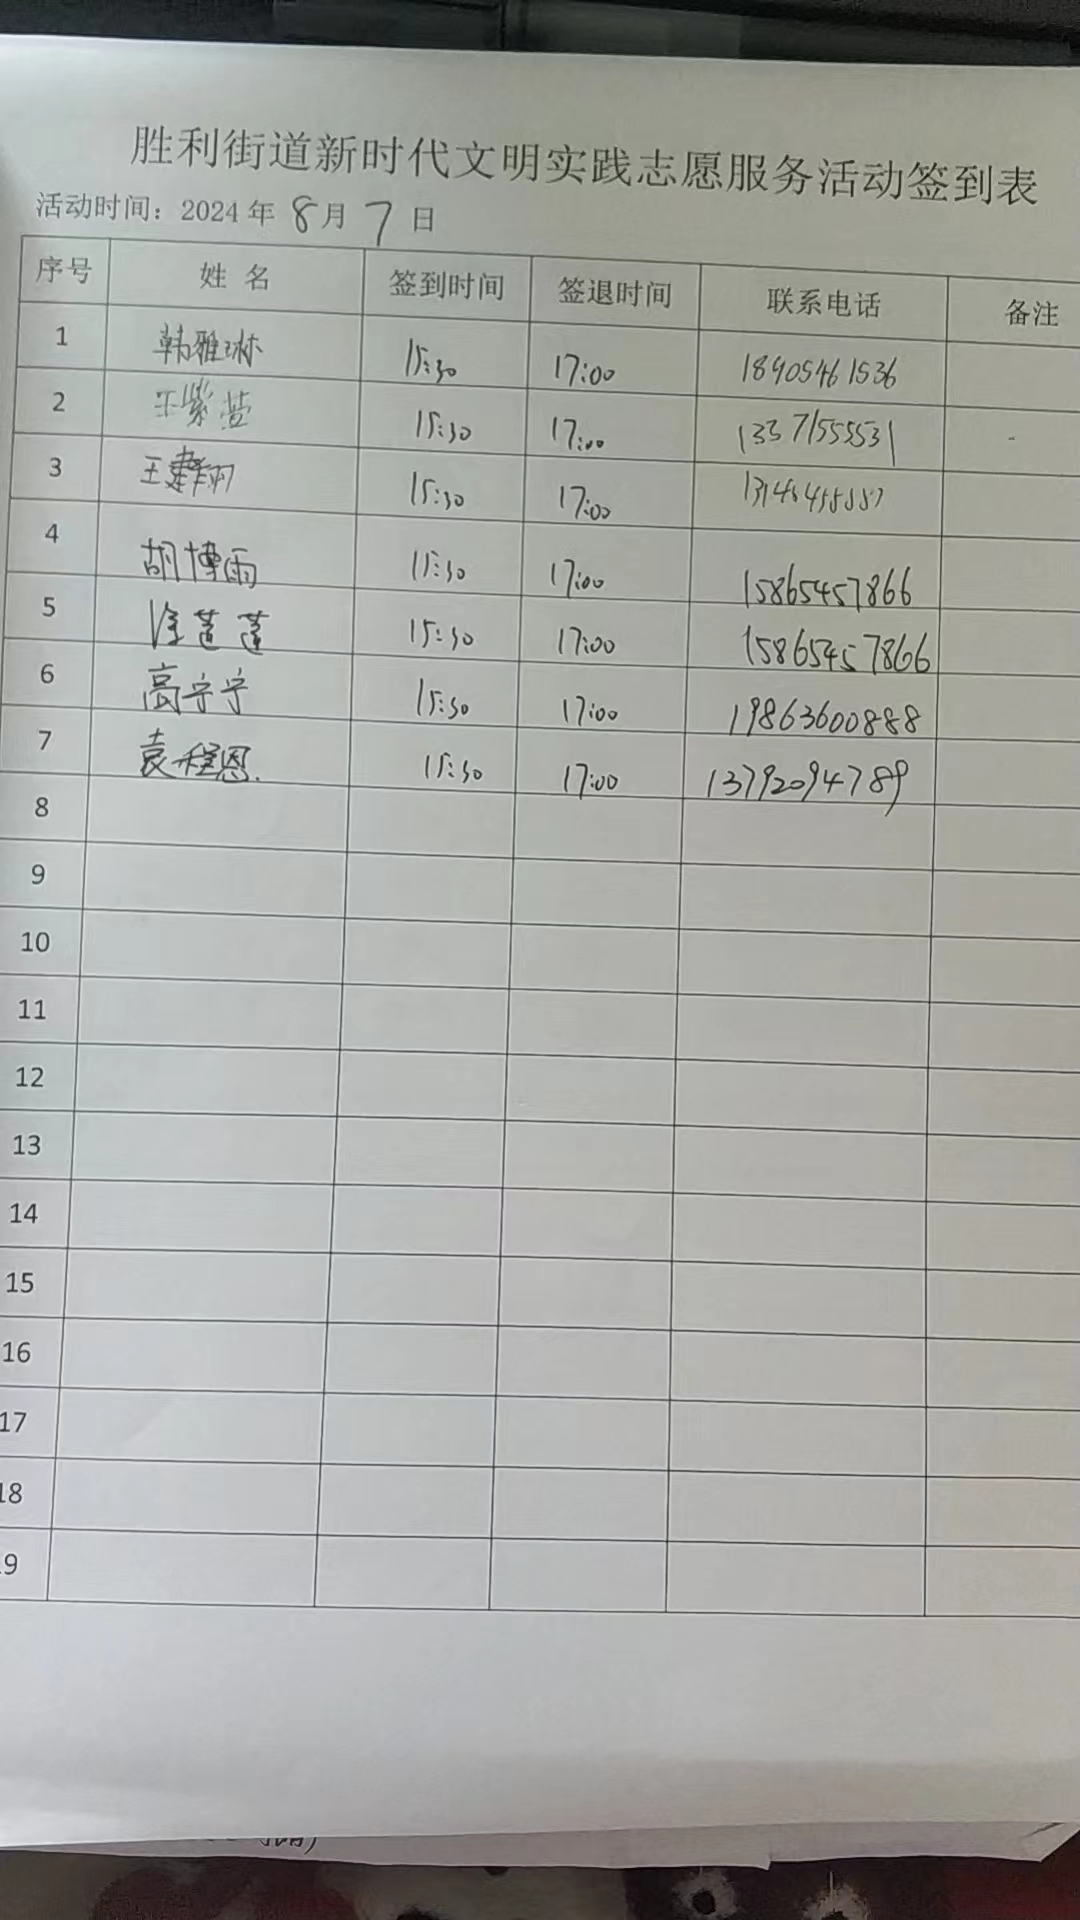 胜利街道新时代文明实践志愿服务活动签到表
活动时间：2024年 8月 7日
序号 姓名 签到时间 签退时间 联系电话 备注
1 韩雅琳 15:30 17:00 18905461536
2 王紫萱 15:30 17:00 13371555531
3 王 15:30 17:00
4 胡博雨 15:30 17:00 15865457866
5 莲莲 15:30 17:00 15865457866
6 高宁宁 15:30 17:00 19863600888
7 袁程恩. 15:30 17:00 13792094789
8
9
10
11
12
13
14
15
16
17
18
19